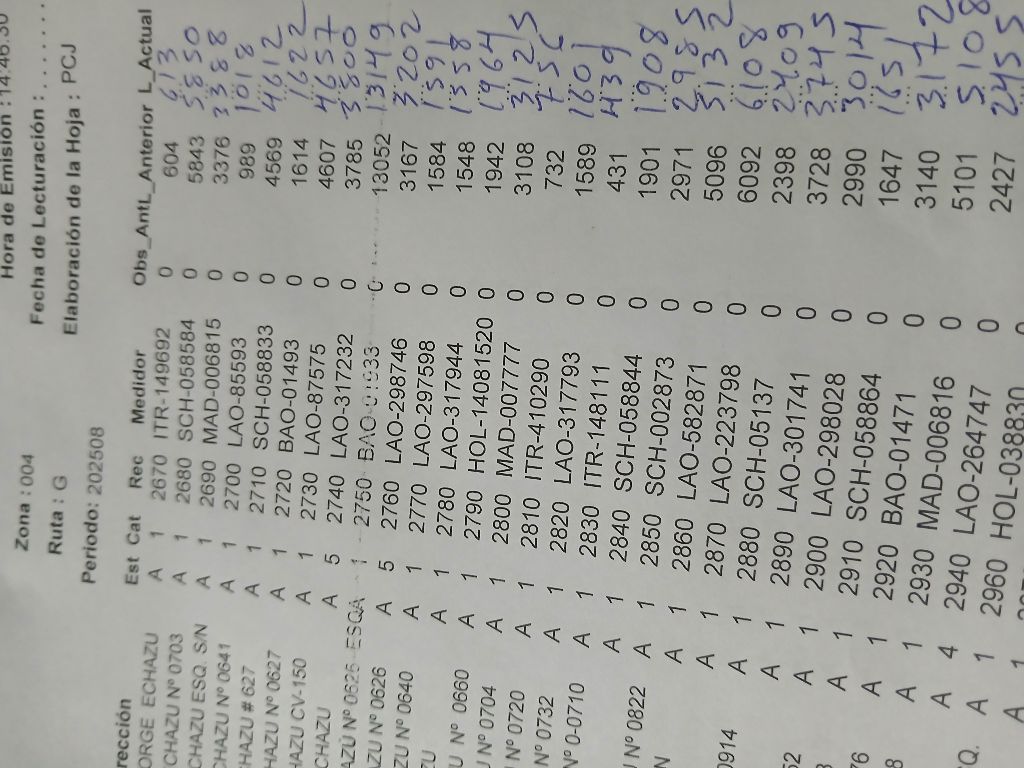 Hora de Emisión :14:46:30
Zona : 004 Fecha de Lecturación : . . . . . . .
Ruta : G Elaboración de la Hoja : PCJ
Periodo: 202508
rección Est Cat Rec Medidor Obs_Ant L_Anterior L_Actual
ORGE ECHAZU A 1 2670 ITR-149692 0 604 613
CHAZU Nº 0703 A 1 2680 SCH-058584 0 5843 5850
CHAZU ESQ. S/N A 1 2690 MAD-006815 0 3376 3388
CHAZU Nº 0641 A 1 2700 LAO-85593 0 989 1018
CHAZU # 627 A 1 2710 SCH-058833 0 4569 4612
HAZU Nº 0627 A 1 2720 BAO-01493 0 1614 1622
HAZU CV-150 A 1 2730 LAO-87575 0 4607 4657
CHAZU A 5 2740 LAO-317232 0 3785 3800
AZU Nº 0625 ESQA 1 2750 BAO-01933 0 13052 13149
AZU Nº 0626 A 5 2760 LAO-298746 0 3167 3202
ZU Nº 0640 A 1 2770 LAO-297598 0 1584 1591
ZU A 1 2780 LAO-317944 0 1548 1558
U Nº 0660 A 1 2790 HOL-14081520 0 1942 1964
U Nº 0704 A 1 2800 MAD-007777 0 3108 3125
Nº 00720 A 1 2810 ITR-410290 0 732 756
Nº 0732 A 1 2820 LAO-317793 0 1589 1601
Nº 0-0710 A 1 2830 ITR-148111 0 431 439
A 1 2840 SCH-058844 0 1901 1908
U Nº 0822 A 1 2850 SCH-002873 0 2971 2985
N A 1 2860 LAO-582871 0 5096 5132
A 1 2870 LAO-223798 0 6092 6108
0914 A 1 2880 SCH-05137 0 2398 2409
A 1 2890 LAO-301741 0 3728 3745
52 A 1 2900 LAO-298028 0 2990 3014
A 1 2910 SCH-058864 0 1647 1651
76 A 1 2920 BAO-01471 0 3140 3172
8 A 1 2930 MAD-006816 0 5101 5108
A 4 2940 LAO-264747 0 2427 2455
Q. A 1 2960 HOL-038830 0